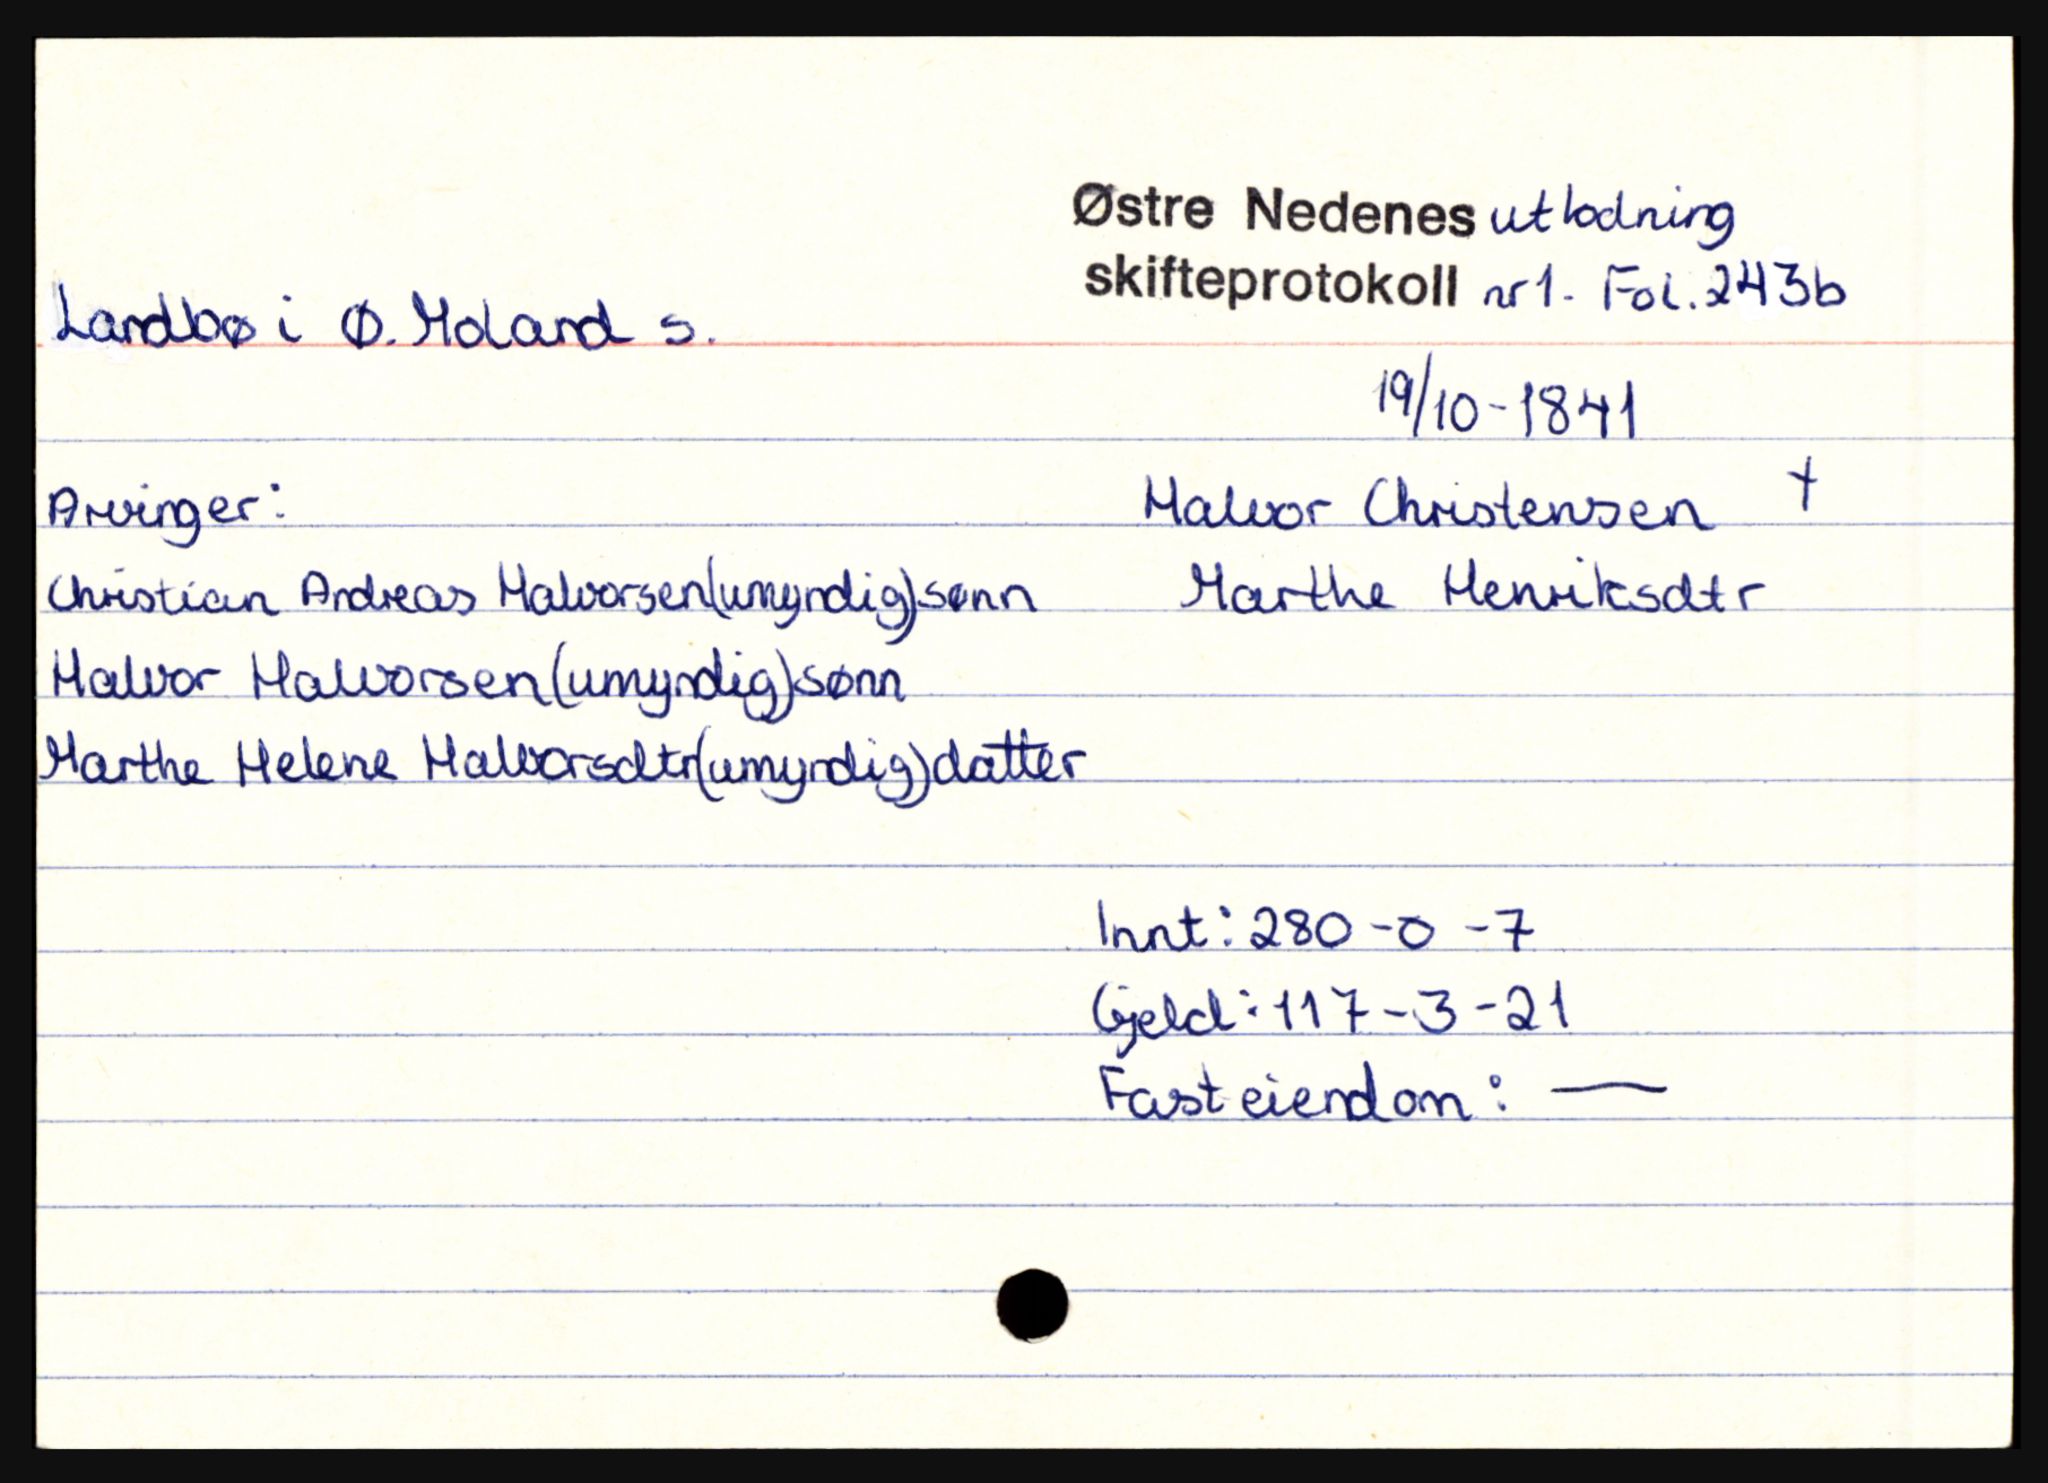 Østre Nedenes utlodning
skifteprotokoll nr 1. Fol. 243b
Landbø i Ø. Moland s.
19/10-1841
Arvinger:
Halvor Christensen †
Christian Andreas Halvorsen (umyndig) sønn
Marthe Henriksdtr
Halvor Halvorsen (umyndig) sønn
Marthe Helene Halvorsdtr (umyndig) datter
Innt: 280-0-7
Gjeld: 117-3-21
Fast eiendom: —